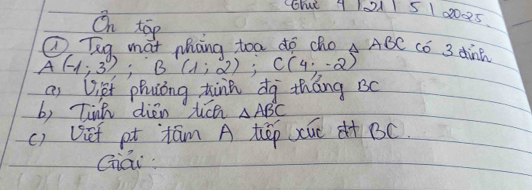 Thứ 4 | 21 | 5 | 2025
Ôn tập
① Trg mặt phẳng tọa độ cho Δ ABC có 3 đỉnh
A(-1; 3); B(1; 2); C(4; -2)
a) Viết phương trình đg thẳng BC
b) Tính diện tích ΔABC
c) Viết pt tâm A tiếp xúc đt BC.
Giải: